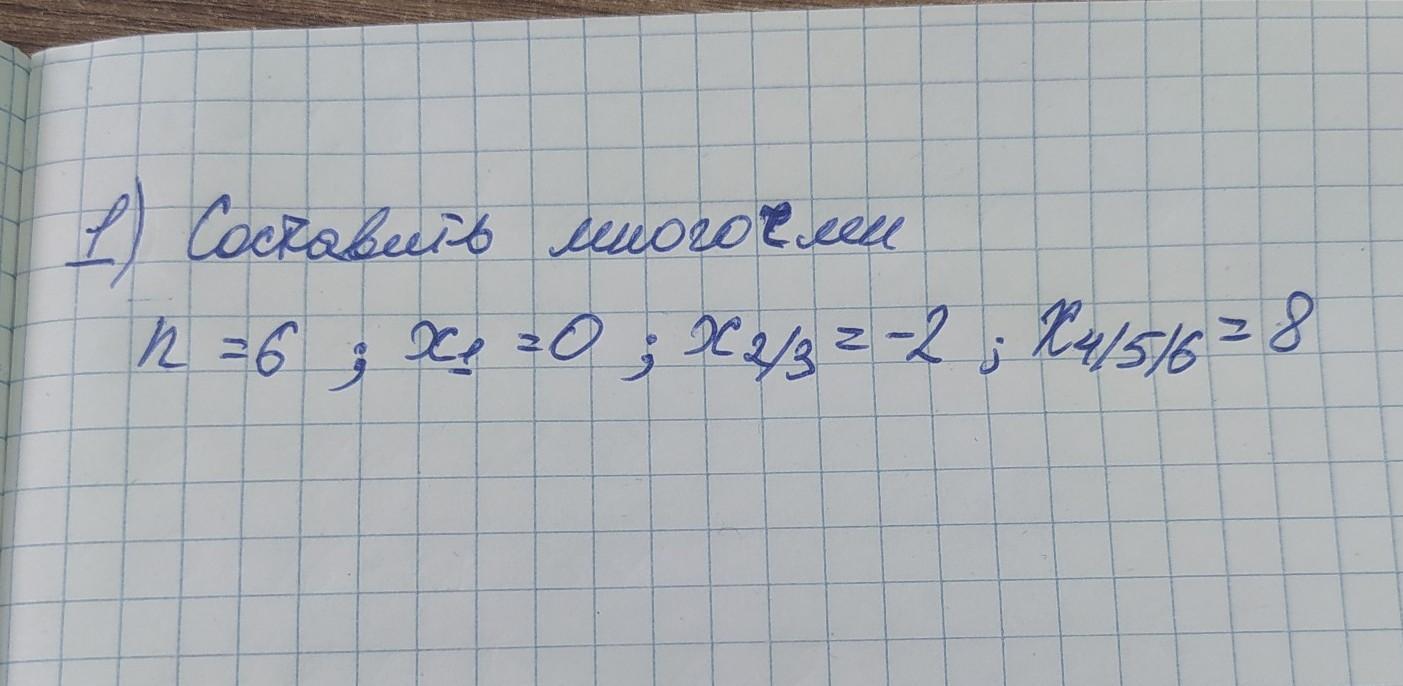 1) Составить многочлен
n = 6 ; x₁ = 0 ; x₂/₃ = -2 ; x₄/₅/₆ = 8